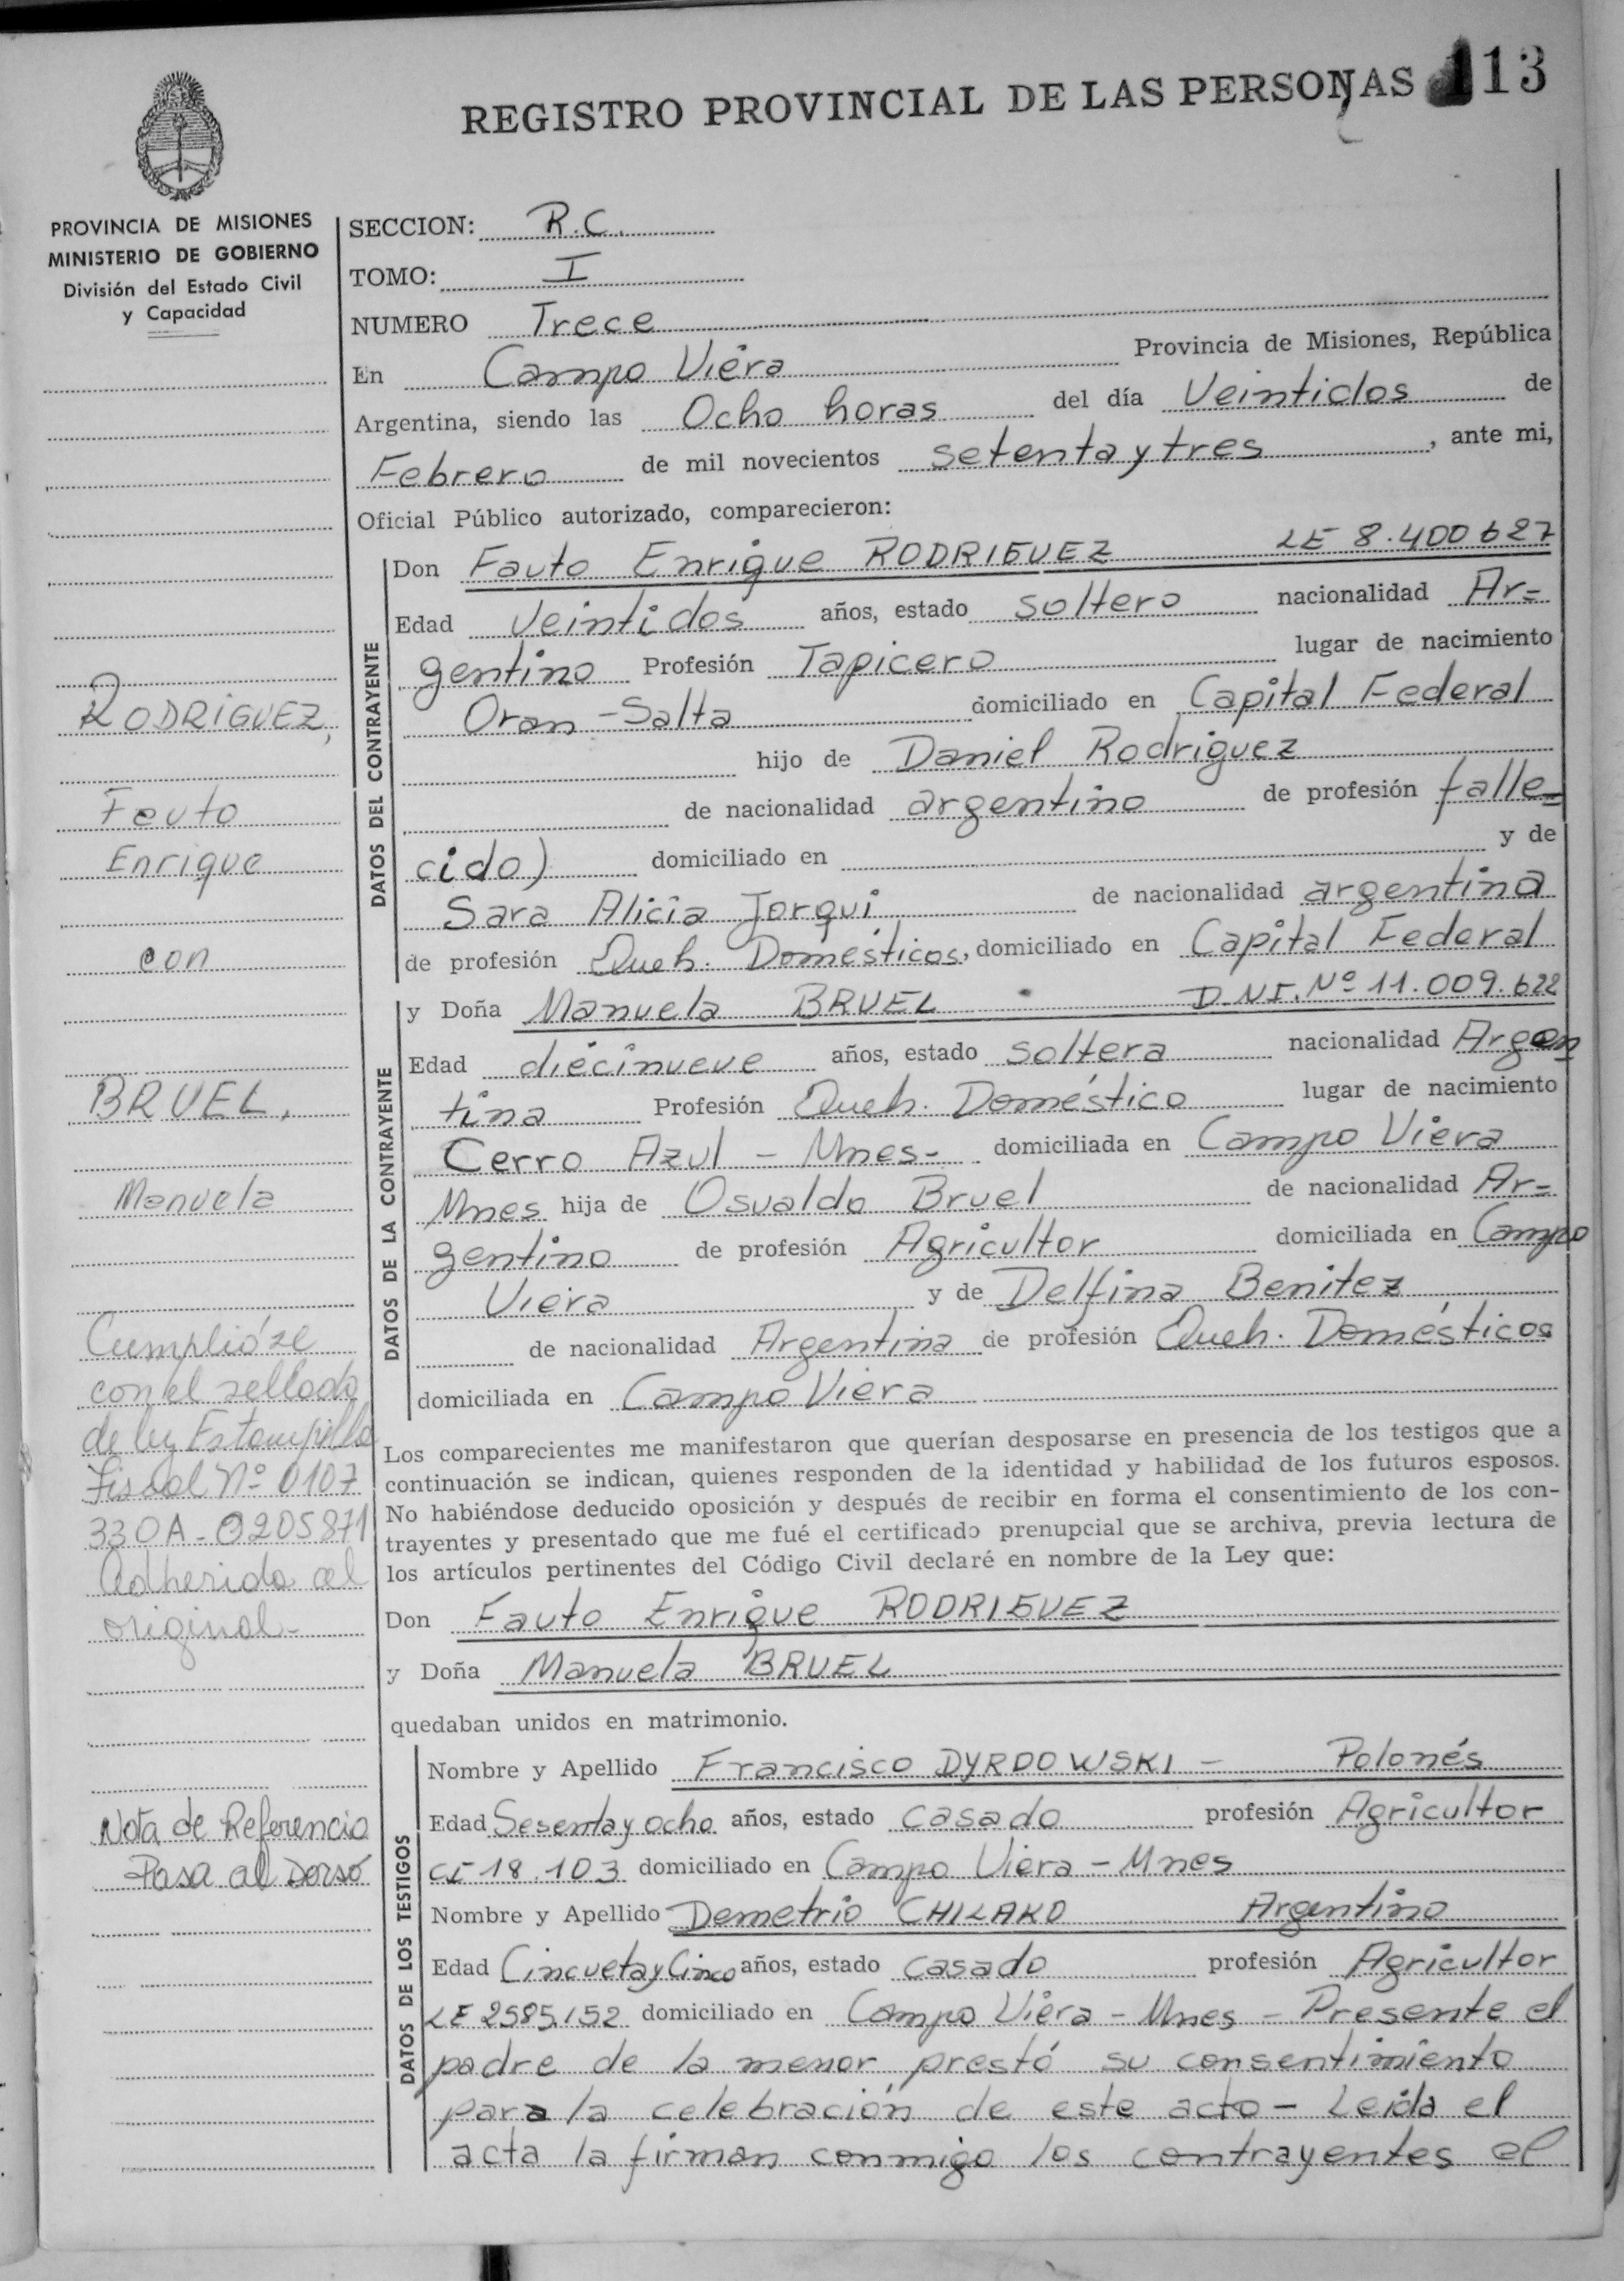 REGISTRO PROVINCIAL DE LAS PERSONAS 113
PROVINCIA DE MISIONES
MINISTERIO DE GOBIERNO
División del Estado Civil
y Capacidad
SECCION: R.C.
TOMO: I
NUMERO Trece
En Campo Viera Provincia de Misiones, República
Argentina, siendo las Ocho horas del día Veintidos de
Febrero de mil novecientos setenta y tres, ante mi,
Oficial Público autorizado, comparecieron:
DATOS DEL CONTRAYENTE
Don Fauto Enrique RODRIGUEZ LE 8.400627
Edad Veintidos años, estado soltero nacionalidad Ar=
gentino Profesión Tapicero lugar de nacimiento
Oran - Salta domiciliado en Capital Federal
hijo de Daniel Rodriguez
de nacionalidad argentino de profesión falle=
cido) domiciliado en y de
Sara Alicia Jorqui de nacionalidad argentina
de profesión Queh. Domésticos, domiciliado en Capital Federal
DATOS DE LA CONTRAYENTE
y Doña Manuela BRUEL D.N.I. Nº 11.009.622
Edad diecinueve años, estado soltera nacionalidad Argen
tina Profesión Queh. Doméstico lugar de nacimiento
Cerro Azul - Mnes- domiciliada en Campo Viera
Mnes hija de Osvaldo Bruel de nacionalidad Ar=
gentino de profesión Agricultor domiciliada en Campo
Viera y de Delfina Benitez
de nacionalidad Argentina de profesión Queh. Domésticos
domiciliada en Campo Viera
Los comparecientes me manifestaron que querían desposarse en presencia de los testigos que a
continuación se indican, quienes responden de la identidad y habilidad de los futuros esposos.
No habiéndose deducido oposición y después de recibir en forma el consentimiento de los con-
trayentes y presentado que me fué el certificado prenupcial que se archiva, previa lectura de
los artículos pertinentes del Código Civil declaré en nombre de la Ley que:
Don Fauto Enrique RODRIGUEZ
y Doña Manuela BRUEL
quedaban unidos en matrimonio.
DATOS DE LOS TESTIGOS
Nombre y Apellido Francisco DYRDOWSKI - Polonés
Edad Sesenta y ocho años, estado casado profesión Agricultor
CI 18.103 domiciliado en Campo Viera - Mnes
Nombre y Apellido Demetrio CHILAKO Argentino
Edad Cincueta y Cinco años, estado casado profesión Agricultor
LE 2585.152 domiciliado en Campo Viera - Mnes - Presente el
padre de la menor prestó su consentimiento
para la celebración de este acto - Leida el
acta la firman conmigo los contrayentes el
RODRIGUEZ,
Fauto
Enrique
con
BRUEL,
Manuela
Cumplióse
con el sellado
de ley Estampilla
Fiscal Nº 0107
330A-0205871
Adherida al
original-
Nota de Referencia
Pasa al Dorso